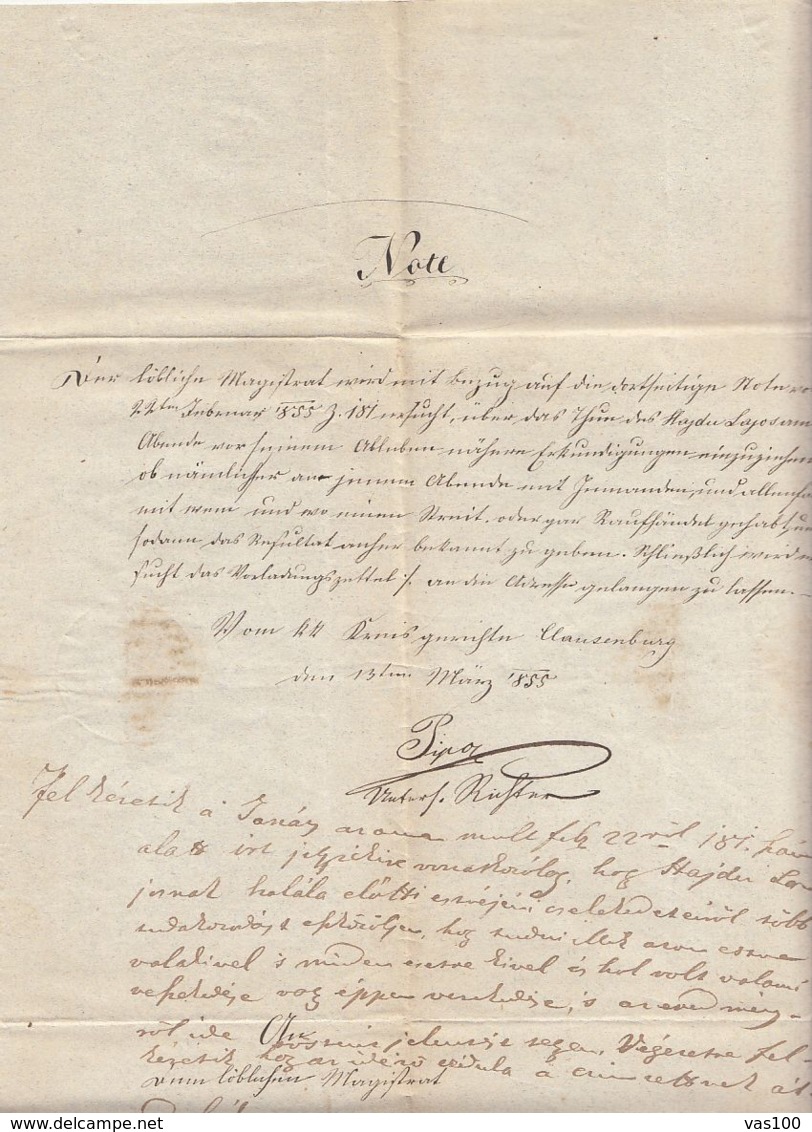 Note
Der löbliche Magistrat wird mit Bezug auf die dortseitige Note vo
22ten Februar 1855 Z. 181 ersucht, über das Thun des Hajdu Lajos am
Abende vor seinem Ableben nähere Erkundigungen einzuziehen
ob nämlicher an jenem Abende mit Jemanden, und allenfa
mit wem und wo einen Streit, oder gar Raufhändel gehabt, un
sodann das Resultat anher bekannt zu geben. Schließlich wird er
sucht das Vorladungszettel /. an die Adresse gelangen zu lassen.
Vom kk Kreisgerichte Clausenburg
den 13ten März 1855
Unters. Richter
Felkéretik a Tanáts mult feb 22ről 181. szám
alatt irt jegyzékire vonatkozólag, hogy Hajdu La
josnak halála előtti estvéjéni cselekedeteiről több
tudakozódást eszközöljen, hogy tudni illik azon estve
valakivel s minden esetre kivel és hol volt valami
veszekedése vagy éppen verekedése, s az eredmény-
ről ide jelentést tegyen. Végezetre fel-
kéretik hogy az idéző czédula a czimzettnek át
An
Den löblichen Magistrat
vas100